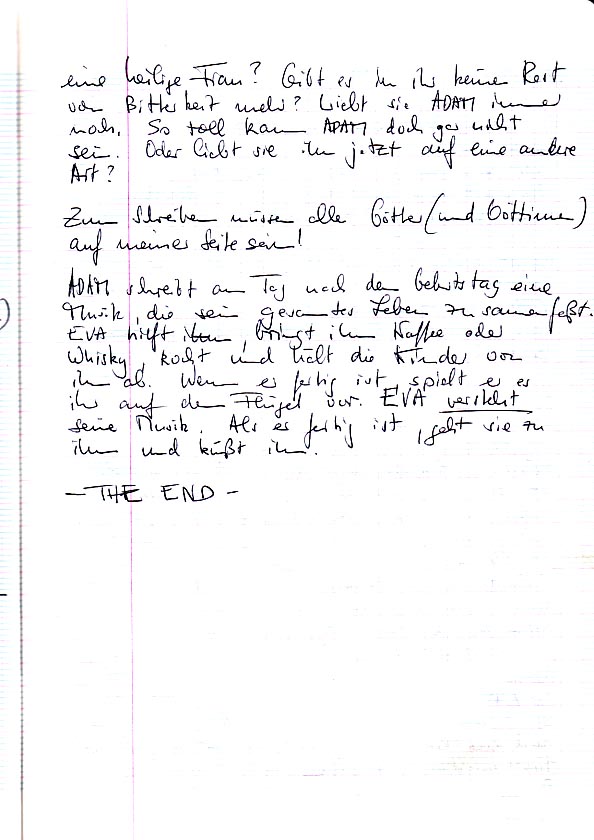 eine heilige Frau? Gibt es in ihr keine Rest
von Bitterkeit mehr? Liebt sie ADAM immer
noch. So toll kann ADAM doch gar nicht
sein. Oder liebt sie ihn jetzt auf eine andere
Art?
Zum Schreiben müssen alle Götter (und Göttinnen)
auf meiner Seite sein!
ADAM schreibt am Tag nach dem Geburtstag eine
Musik, die sein gesamtes Leben zusammenfaßt.
EVA hilft ihm, bringt ihm Kaffee oder
Whisky, kocht und hält die Kinder von
ihm ab. Wenn er fertig ist, spielt er es
ihr auf dem Flügel vor. EVA versteht
seine Musik. Als er fertig ist, geht sie zu
ihm und küßt ihn.
- THE END -